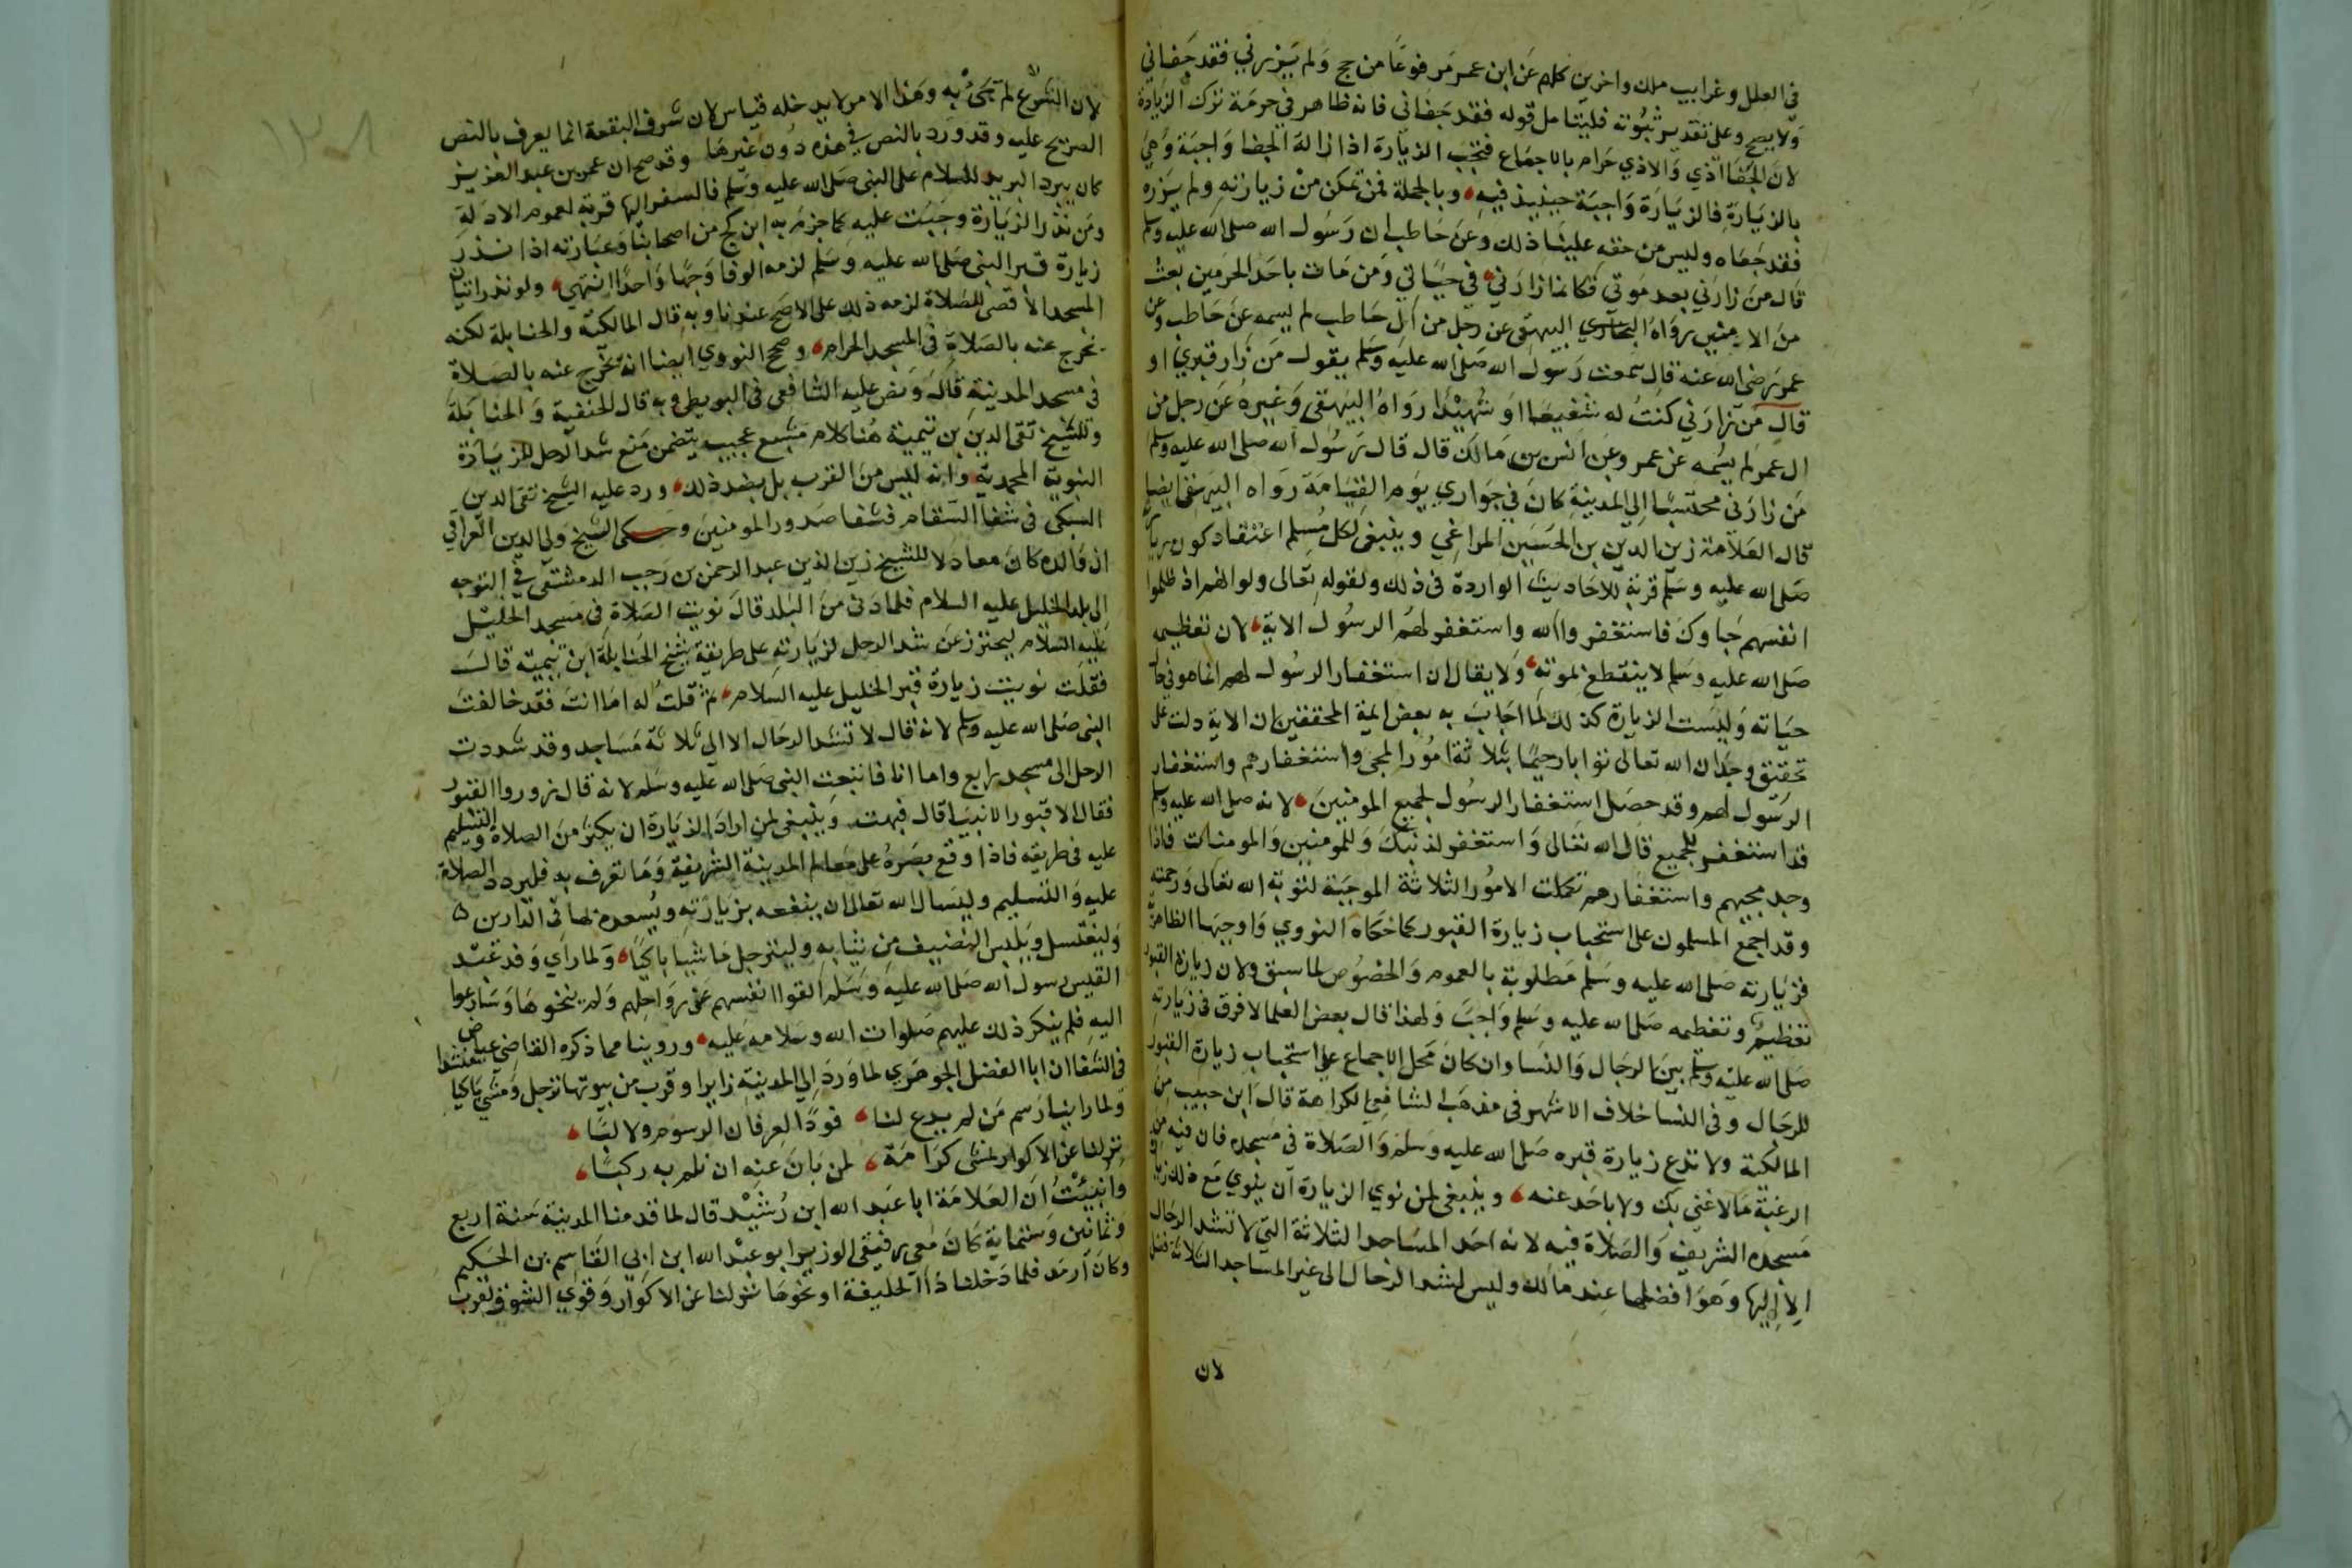 في العلل وغرايب ملك واخرين كلهم عن ابن عمر مرفوعا من حج ولم يزرني فقد جفاني
ولا يصح وعلى تقدير ثبوته فليتامل قوله فقد جفاني فانه ظاهر في حرمة ترك الزيارة
لان الجفا اذي والاذي حرام بالاجماع فتجب الزيارة اذ ازالة الجفا واجبة وهي
بالزيارة فالزيارة واجبة حينيذ فيه وبالجملة فمن تمكن من زيارته ولم يزره
فقد جفاه وليس من حقه علينا ذلك وعن حاطب ان رسول الله صلى الله عليه وسلم
قال من زارني بعد موتي فكانما زارني في حياتي ومن مات باحد الحرمين بعث
من الامنين رواه البيهقي عن رجل من ال حاطب لم يسمه عن حاطب وعن
عمر رضى الله عنه قال سمعت رسول الله صلى الله عليه وسلم يقول من زار قبري او
قال من زارني كنت له شفيعا او شهيدا رواه البيهقي وغيره عن رجل من
ال عمر لم يسمه عن عمر وعن انس بن مالك قال قال رسول الله صلى الله عليه وسلم
من زارني محتسبا الى المدينة كان في جواري يوم القيامة رواه البيهقي ايضا
قال العلامة زين الدين بن الحسين المراغي وينبغي لكل مسلم اعتقاد كون زيارته
صلى الله عليه وسلم قربة للاحاديث الواردة في ذلك ولقوله تعالى ولو انهم اذ ظلموا
انفسهم جاوك فاستغفروا الله واستغفر لهم الرسول الاية لان تعظيمه
صلى الله عليه وسلم لا ينقطع بموته ولا يقال ان استغفار الرسول لهم انما هو في حال
حياته وليست الزيارة كذلك لما اجاب به بعض ايمة المحققين ان الاية دلت على
تحقيق وجدان الله تعالى توابا رحيما بثلاثة امور المجي واستغفارهم واستغفار
الرسول لهم وقد حصل استغفار الرسول لجميع المومنين لانه صلى الله عليه وسلم
قد استغفر للجميع قال الله تعالى واستغفر لذنبك وللمومنين والمومنات فاذا
وجد مجيهم واستغفارهم تكملت الامور الثلاثة الموجبة لتوبة الله تعالى ورحمته
وقد اجمع المسلمون على استحباب زيارة القبور كما حكاه النووي واوجبها الظاهرية
فزيارته صلى الله عليه وسلم مطلوبة بالعموم والخصوص لما سبق ولان زيارة القبور
تعظيم وتعظيمه صلى الله عليه وسلم واجب ولهذا قال بعض العلما لا فرق في زيارته
صلى الله عليه وسلم بين الرجال والنسا وان كان محل الاجماع على استحباب زيارة القبور
للرجال وفي النسا خلاف الاشهر في مذهب الشافعي الكراهة قال ابن حبيب من
المالكية ولا تدع زيارة قبره صلى الله عليه وسلم والصلاة في مسجده فان فيه من
الرغبة مالا غنى بك ولا باحد عنه وينبغي لمن نوي الزيارة ان ينوي مع ذلك زيارة
مسجده الشريف والصلاة فيه لانه احد المساجد الثلاثة التي لا تشد الرحال
الا اليها وهو افضلها عند مالك وليس لشد الرحال الى غير المساجد الثلاثة فضل
لان
لان الشرع لم يجئ به وهذا الامر لا يدخله قياس لان شرف البقعة انما يعرف بالنص
الصريح عليه وقد ورد بالنص في هذه دون غيرها وقد صح ان عمر بن عبد العزيز
كان يبرد البريد للسلام على النبي صلى الله عليه وسلم فالسفر اليها قربة لعموم الادلة
ومن نذر الزيارة وجبت عليه كما جزم به ابن كج من اصحابنا وعبارته اذا نذر
زيارة قبر النبي صلى الله عليه وسلم لزمه الوفا وجها واحدا انتهي ولو نذر اتيان
المسجد الاقصى للصلاة لزمه ذلك على الاصح عندنا وبه قال المالكية والحنابلة لكنه
يخرج عنه بالصلاة في المسجد الحرام وصحح النووي ايضا انه يخرج عنه بالصلاة
في مسجد المدينة قال ونص عليه الشافعي في البويطي وبه قال الحنفية والحنابلة
وللشيخ تقي الدين بن تيمية هنا كلام شنيع عجيب يتضمن منع شد الرحل للزيارة
النبوية المحمدية وانه ليس من القرب بل بضد ذلك ورد عليه الشيخ تقي الدين
السبكي في شفا السقام فشفا صدور المومنين وحكى الشيخ ولي الدين العراقي
ان والده كان معادلا للشيخ زين الدين عبد الرحمن بن رجب الدمشقي في التوجه
الى بلد الخليل عليه السلام فلما دنى من البلد قال نويت الصلاة في مسجد الخليل
عليه السلام ليحترز عن شد الرحل لزيارته على طريقة شيخ الحنابلة ابن تيمية قال
فقلت نويت زيارة قبر الخليل عليه السلام ثم قلت له اما انت فقد خالفت
النبي صلى الله عليه وسلم لانه قال لا تشد الرحال الا الى ثلاثة مساجد وقد شددت
الرحل الى مسجد رابع واما انا فاتبعت النبي صلى الله عليه وسلم لانه قال زوروا القبور
افقال الا قبور الانبيا قال فبهت وينبغي لمن اراد الزيارة ان يكثر من الصلاة والتسليم
عليه في طريقه فاذا وقع بصره على معالم المدينة الشريفة وما تعرف به فليردد الصلاة
عليه والتسليم وليسال الله تعالى ان ينفعه بزيارته ويسعده بها في الدارين
وليغتسل ويلبس النضيف من ثيابه وليترجل ماشيا باكيا ولما راي وفد عبد
القيس رسول الله صلى الله عليه وسلم القوا انفسهم عن رواحلهم ولم ينخوها وسارعوا
اليه فلم ينكر ذلك عليهم صلوات الله وسلامه عليه وروينا مما ذكره القاضي عياض
في الشفا ان ابا الفضل الجوهري لما ورد الى المدينة زايرا وقرب من بيوتها ترجل ومشي باكيا منشدا
ولما راينا رسم من لم يدع لنا فودا لعرفان الرسوم ولا لبا
نزلنا عن الاكوار نمشى كرامة لمن بان عنه ان نلم به ركبا
وانبيت ان العلامة ابا عبد الله ابن رشيد قال لما قدمنا المدينة سنة اربع
وثمانين وستماية كان معي رفيقي الوزير ابو عبد الله ابن ابي القاسم بن الحكيم
وكان ارمد فلما دخلنا ذا الحليفة او نحوها نزلنا عن الاكوار وقوي الشوق لقرب